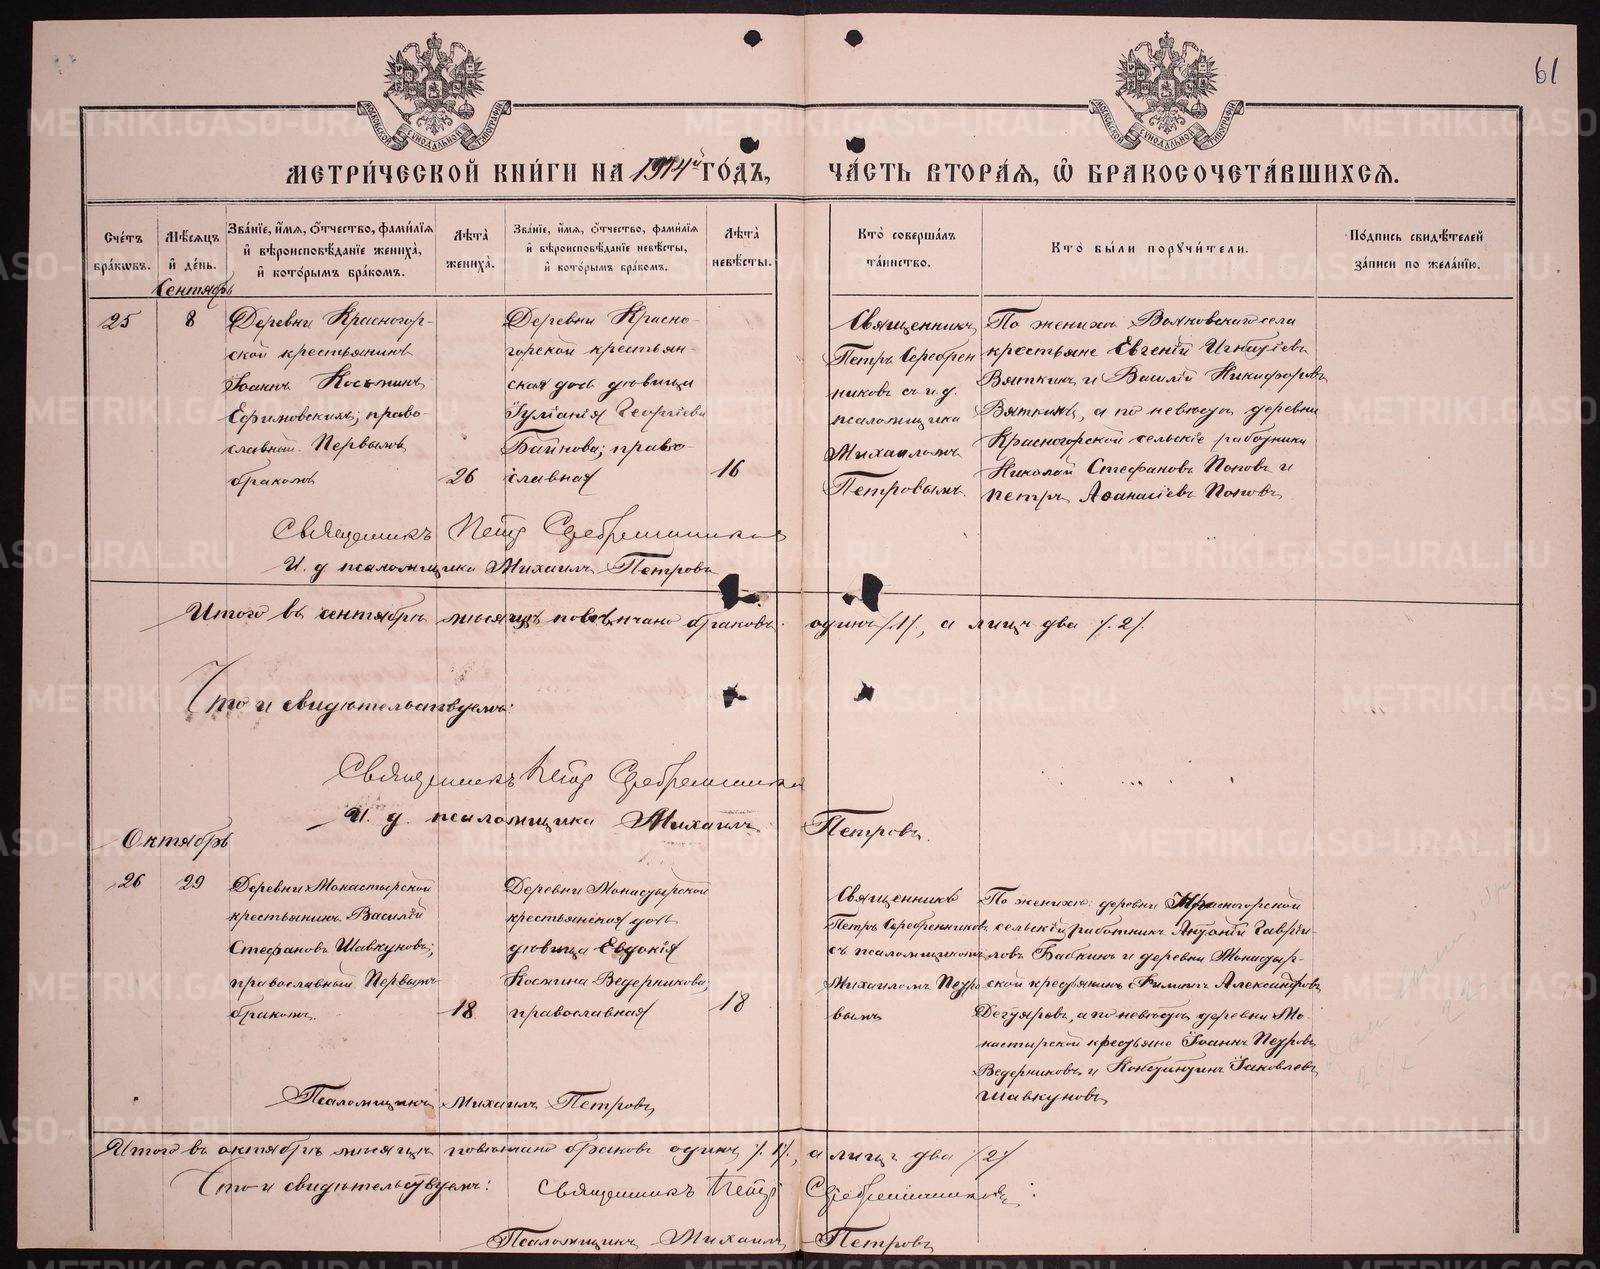 61
МОСКОВСКОЙ СѴНОДАЛЬНОЙ ТИПОГРАФІИ
МОСКОВСКОЙ СѴНОДАЛЬНОЙ ТИПОГРАФІИ
МЕТРИ́ЧЕСКОЙ КНИ́ГИ НА 1914й ГО́ДЪ, ЧА́СТЬ ВТОРА́Я, Ѿ БРАКОСОЧЕТА́ВШИХСЯ.
Сче́тъ бра́кѡвъ.
Мѣ́сяцъ и҆ де́нь.
Зва́нїе, и҆́мя, ѻ҆́тчество, фами́лїя и҆ вѣроисповѣ́данїе жениха̀, и҆ кото́рымъ бра́комъ.
Лѣ́та жениха̀.
Зва́нїе, и҆́мя, ѻ҆́тчество, фами́лїя и҆ вѣроисповѣ́данїе невѣ́сты, и҆ кото́рымъ бра́комъ.
Лѣ́та невѣ́сты.
Кто̀ соверша́лъ та́инство.
Кто̀ бы́ли поручи́тели.
По́дпись свидѣ́телей за́писи по жела́нїю.
Сентябрь
25
8
Деревни Красногор-
ской крестьянинъ
Іоаннъ Косьминъ
Ефимовскихъ; право-
славный. Первымъ
бракомъ
26
Деревни Красно-
горской крестьян-
ская дочь дѣвица
Іуліанія Георгіева
Баинова; право-
славная
16
Священникъ
Петръ Серебрен
никовъ съ и.д.
псаломщика
Михаиломъ
Петровымъ.
По женихѣ Волковскаго села
крестьяне Евгеній Игнатіевъ
Вяткинъ и Василій Никифоровъ
Вяткинъ, а по невѣстѣ деревни
Красногорской сельскіе работники
Николай Стефановъ Поповъ и
Петръ Аѳанасіевъ Поповъ
Священникъ Петръ Серебренниковъ
И. д псаломщика Михаилъ Петровъ
Итого въ сентябрѣ мѣсяцѣ повѣнчано браковъ: одинъ /.1/., а лицъ два /.2/.
Что и свидѣтельствуемъ:
Священникъ Петръ Серебренниковъ
И. д. псаломщика Михаилъ Петровъ.
Октябрь
26
29
Деревни Монастырской
крестьянинъ Василій
Стефановъ Шавкуновъ;
православный Первымъ
бракомъ.
18
Деревни Монастырской
крестьянская дочь
дѣвица Евдокія
Космина Ведерникова;
православная
18
Священникъ
Петръ Серебренниковъ
съ псаломщикомъ
Михаиломъ Петро
вымъ
По женихѣ: деревни Красногорской
сельскій работникъ Антоній Гавріи-
ловъ Бабкинъ и деревни Монастыр-
ской крестьянинъ Филиппъ Александровъ
Дегтяревъ, а по невѣстѣ, деревни Мо-
настырской крестьяне Іоаннъ Петровъ
Ведерниковъ и Константинъ Іаковлевъ
Шавкуновъ
Псаломщикъ Михаилъ Петровъ
Итого въ октябрѣ мѣсяцѣ повѣнчано браковъ одинъ /.1/., а лицъ два /2/
Что и свидѣтельствуемъ: Священникъ Петръ Серебренниковъ:
Псаломщикъ Михаилъ Петровъ
METRIKI.GASO-URAL.RU